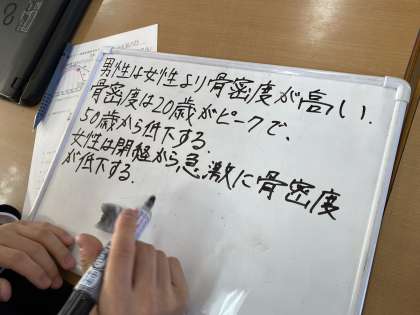 男性は女性より骨密度が高い.
骨密度は20歳がピークで、
50歳から低下する.
女性は閉経から急激に骨密度
が低下する.